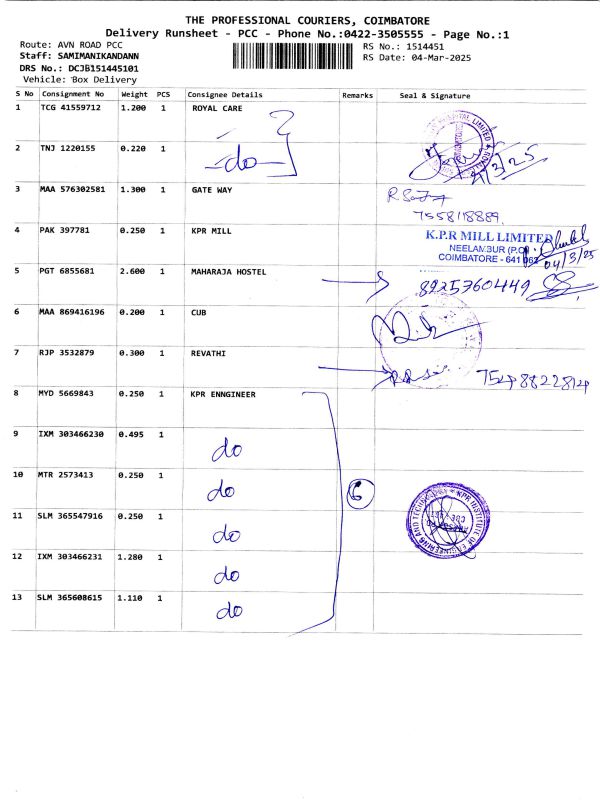 THE PROFESSIONAL COURIERS, COIMBATORE
Delivery Runsheet - PCC - Phone No.:0422-3505555 - Page No.:1
Route: AVN ROAD PCC
RS No.: 1514451
Staff: SAMIMANIKANDANN
RS Date: 04-Mar-2025
DRS No.: DCJB151445101
Vehicle: Box Delivery
S No Consignment No Weight PCS Consignee Details Remarks Seal & Signature
1 TCG 41559712 1.200 1 ROYAL CARE
2 TNJ 1220155 0.220 1 do
3 MAA 576302581 1.300 1 GATE WAY
7558118889
4 PAK 397781 0.250 1 KPR MILL
K.P.R MILL LIMITED
NEELAMBUR (P.O)
COIMBATORE - 641 062
04/3/25
5 PGT 6855681 2.600 1 MAHARAJA HOSTEL
8925760449
6 MAA 869416196 0.200 1 CUB
7 RJP 3532879 0.300 1 REVATHI
8 MYD 5669843 0.250 1 KPR ENNGINEER
9 IXM 303466230 0.495 1 do
10 MTR 2573413 0.250 1 do 6
KPR INSTITUTE OF ENGINEERING AND TECHNOLOGY
11 SLM 365547916 0.250 1 do
12 IXM 303466231 1.280 1 do
13 SLM 365608615 1.110 1 do